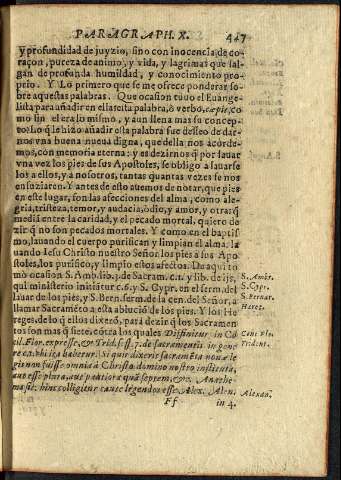 PARAGRAPH. X. 447
y profundidad de juyzio, sino con inocencia de co-
raçon, pureza de animo, y vida, y lagrimas que sal-
gan de profunda humildad, y conocimiento pro-
prio. Y Lo primero que se me ofrece ponderar so-
bre aquestas palabras. Que ocasion tuuo el Euange-
lista para añadir en ella
mo lin era lo mismo, y aun llena mas su concep-
to: Lo que le hizo añadir esta palabra fue desseo de dar-
nos vna buena nueua digna, que della nos acorde-
mos, con memoria eterna: y es dezirnos que por lauar
vna vez los pies de sus Apostoles, se obligo a lauarse
los a ellos, y a nosotros, tantas quantas vezes se nos
ensuziaren. Y antes de esto auemos de notar, que pies
en este lugar, son las afecciones del alma, como ale-
gria, tristeza, temor, y audacia, odio, y amor, y otras que
media entre la caridad, y el pecado mortal, quiero de-
zir que no son pecados mortales. Y como en el baptis-
mo, lauando el cuerpo purifican y limpian el alma: la
uando Iesu Christo nuestro Señor los pies a sus Apo-
stoles, los purifico, y limpio estos afectos. De aqui to
mò ocasion S. Ambr. lib. 3. de Sacram. c. 1. y lib. de ijs,
qui ministerio initiatur c. 6. y S. Cypr. en el serm. del
lauar de los pies, y S. Bern. serm. de la cen. del Señor, a
llamar Sacramẽto a esta ablució de los pies. Y los He-
reges, de lo que ellos dixerõ, para dezir que los Sacramen-
tos son mas que siete, cõtra los quales Diffinitur in Cõ
cil. Flor. expresse, & Trid. sess. 7. de sacramentis in gene
re c. 1. vbi ita habetur. Si quis dixerit sacramẽta nouæ le
gis non fuisse omnia à Christo domino nostro instituta,
aut esse plura, aut pauciora quã septem, &c. Anathe-
ma sit. hinc colligitur caute legendos esse Alex. Alen.
S. Ambr.
S. Cypr.
S. Bernar.
Hereg.
Conc. Flo.
Trident.
Alexan.
Ff
in 4.